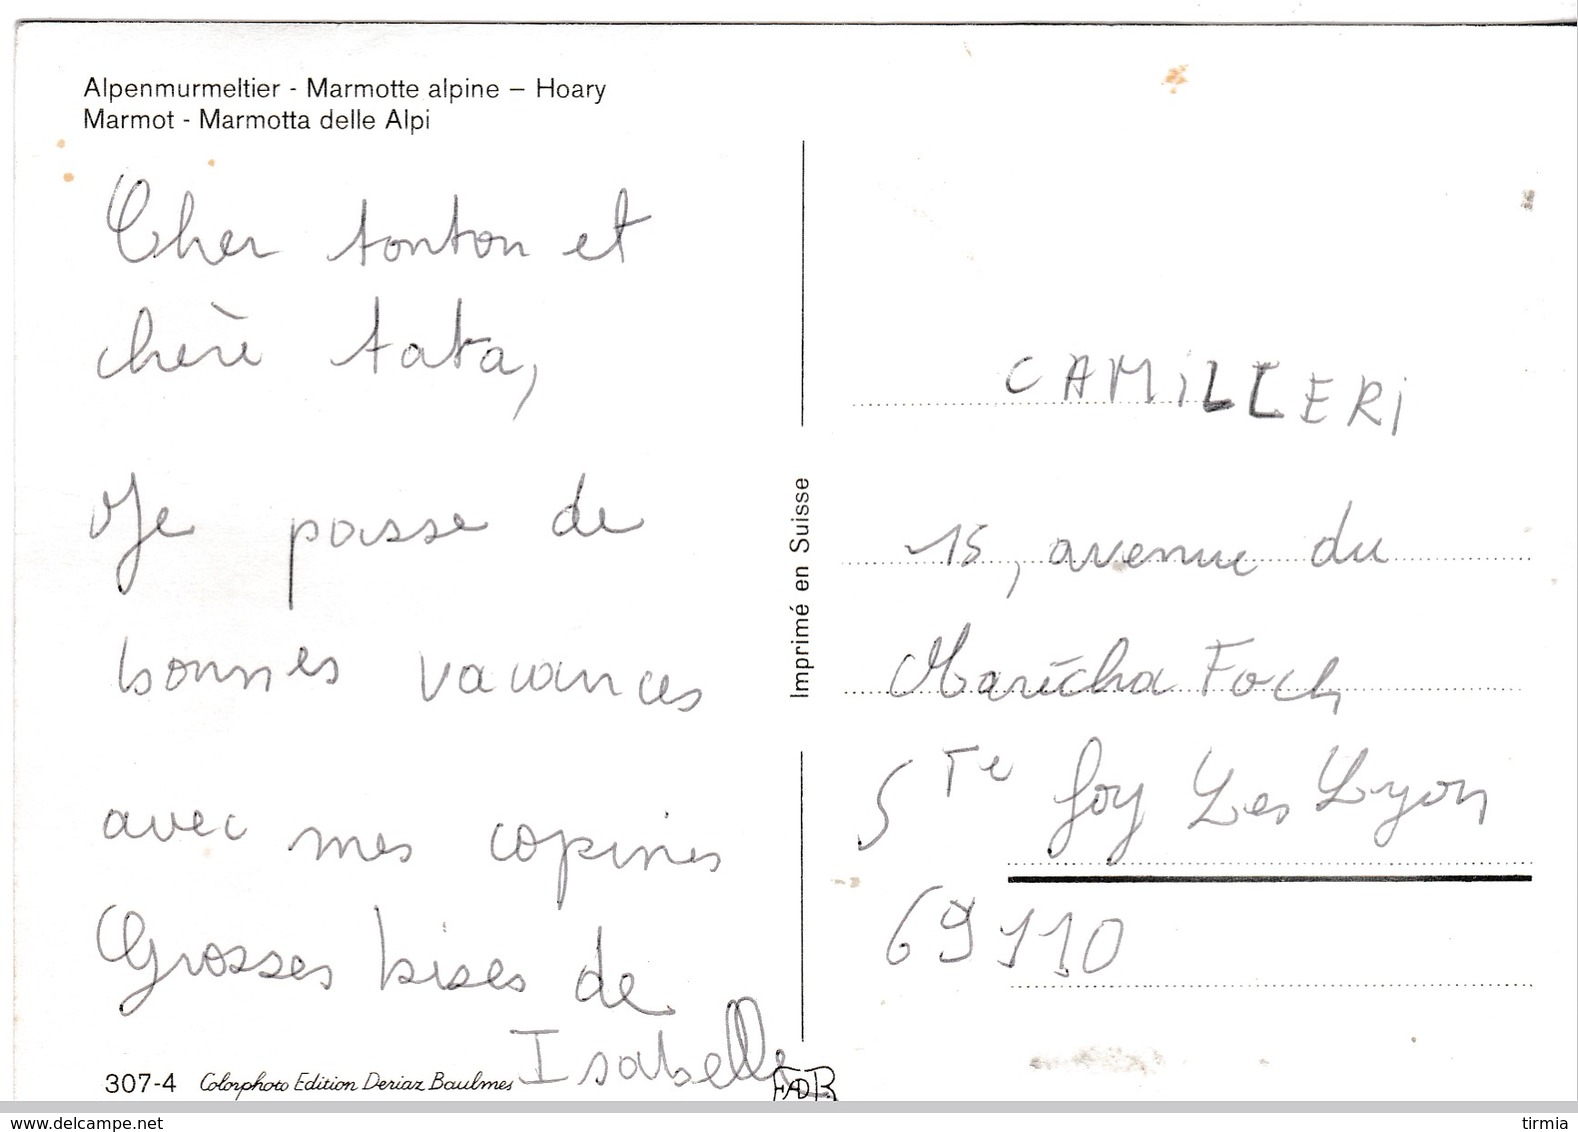 Alpenmurmeltier - Marmotte alpine – Hoary
Marmot - Marmotta delle Alpi
Cher tonton et
chère tata,
Je passe de
bonnes vacances
avec mes copines
Grosses bises de
Isabelle
307-4 Colorphoto Edition Deriaz Baulmes
Imprimé en Suisse
CAMiLLERi
15, avenue du
Marécha Foch
STe Foy Les Lyon
69110
www.delcampe.net
tirmia